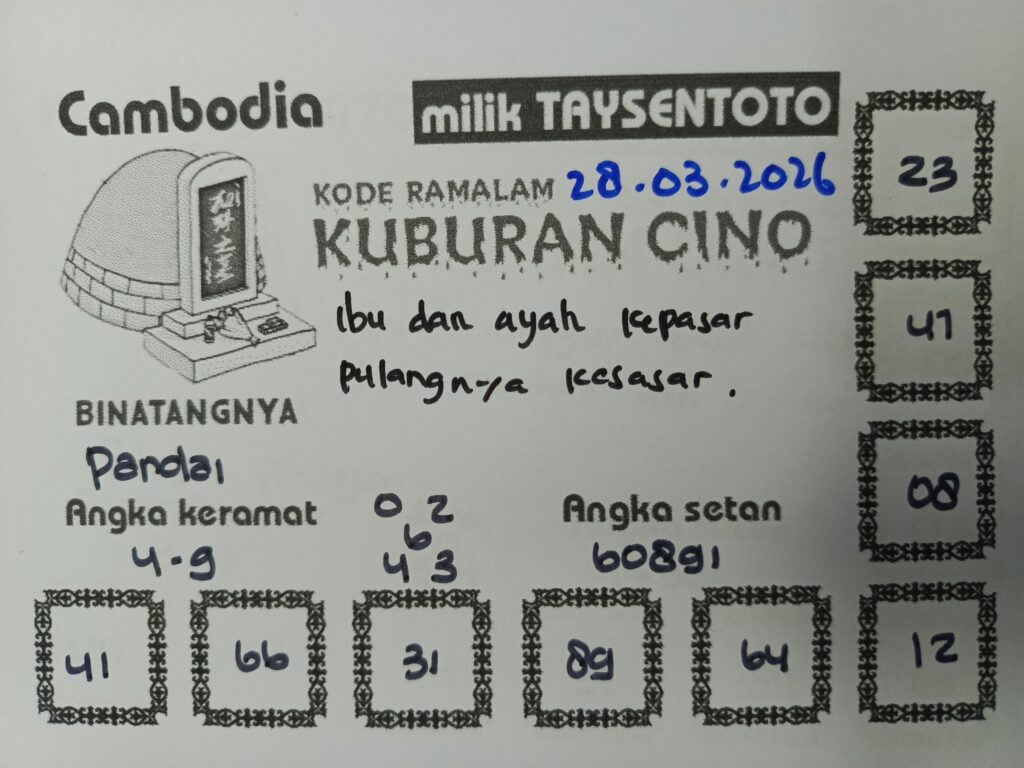 Cambodia
milik TAYSENTOTO
KODE RAMALAM 28.03.2026
KUBURAN CINO
Ibu dan ayah kepasar
pulangnya kesasar.
BINATANGNYA
Pandai
Angka keramat
4.9
0 2
6
4 3
Angka setan
60891
41
66
31
89
64
23
41
08
12